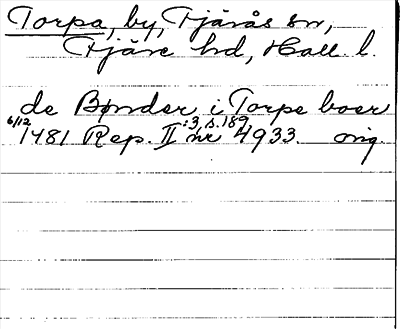 Torpa, by, Tjärås sn,
Fjäre hd, Hall. l.
de Bønder i Torpe boer
6/12 1481 Rep. II:3, s.189, nr 4933. orig.